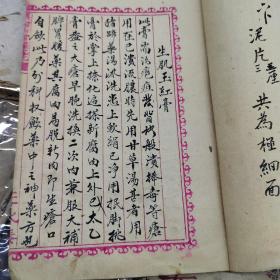 生肌玉紅膏
此膏治癰疽發背諸般潰爛棒毒等瘡
用在已潰流膿時先用甘草湯甚者用
猪蹄藥湯淋洗患上軟絹已净用抿脚挑
膏於掌上捺化遍搽新腐肉上外以太乙
膏蓋之大瘡早晚洗換二次内兼服大補
脾胃暖藥其腐肉易脱新肉即生瘡口
自斂此乃外科收斂藥中之神藥方也
片
共為極細面